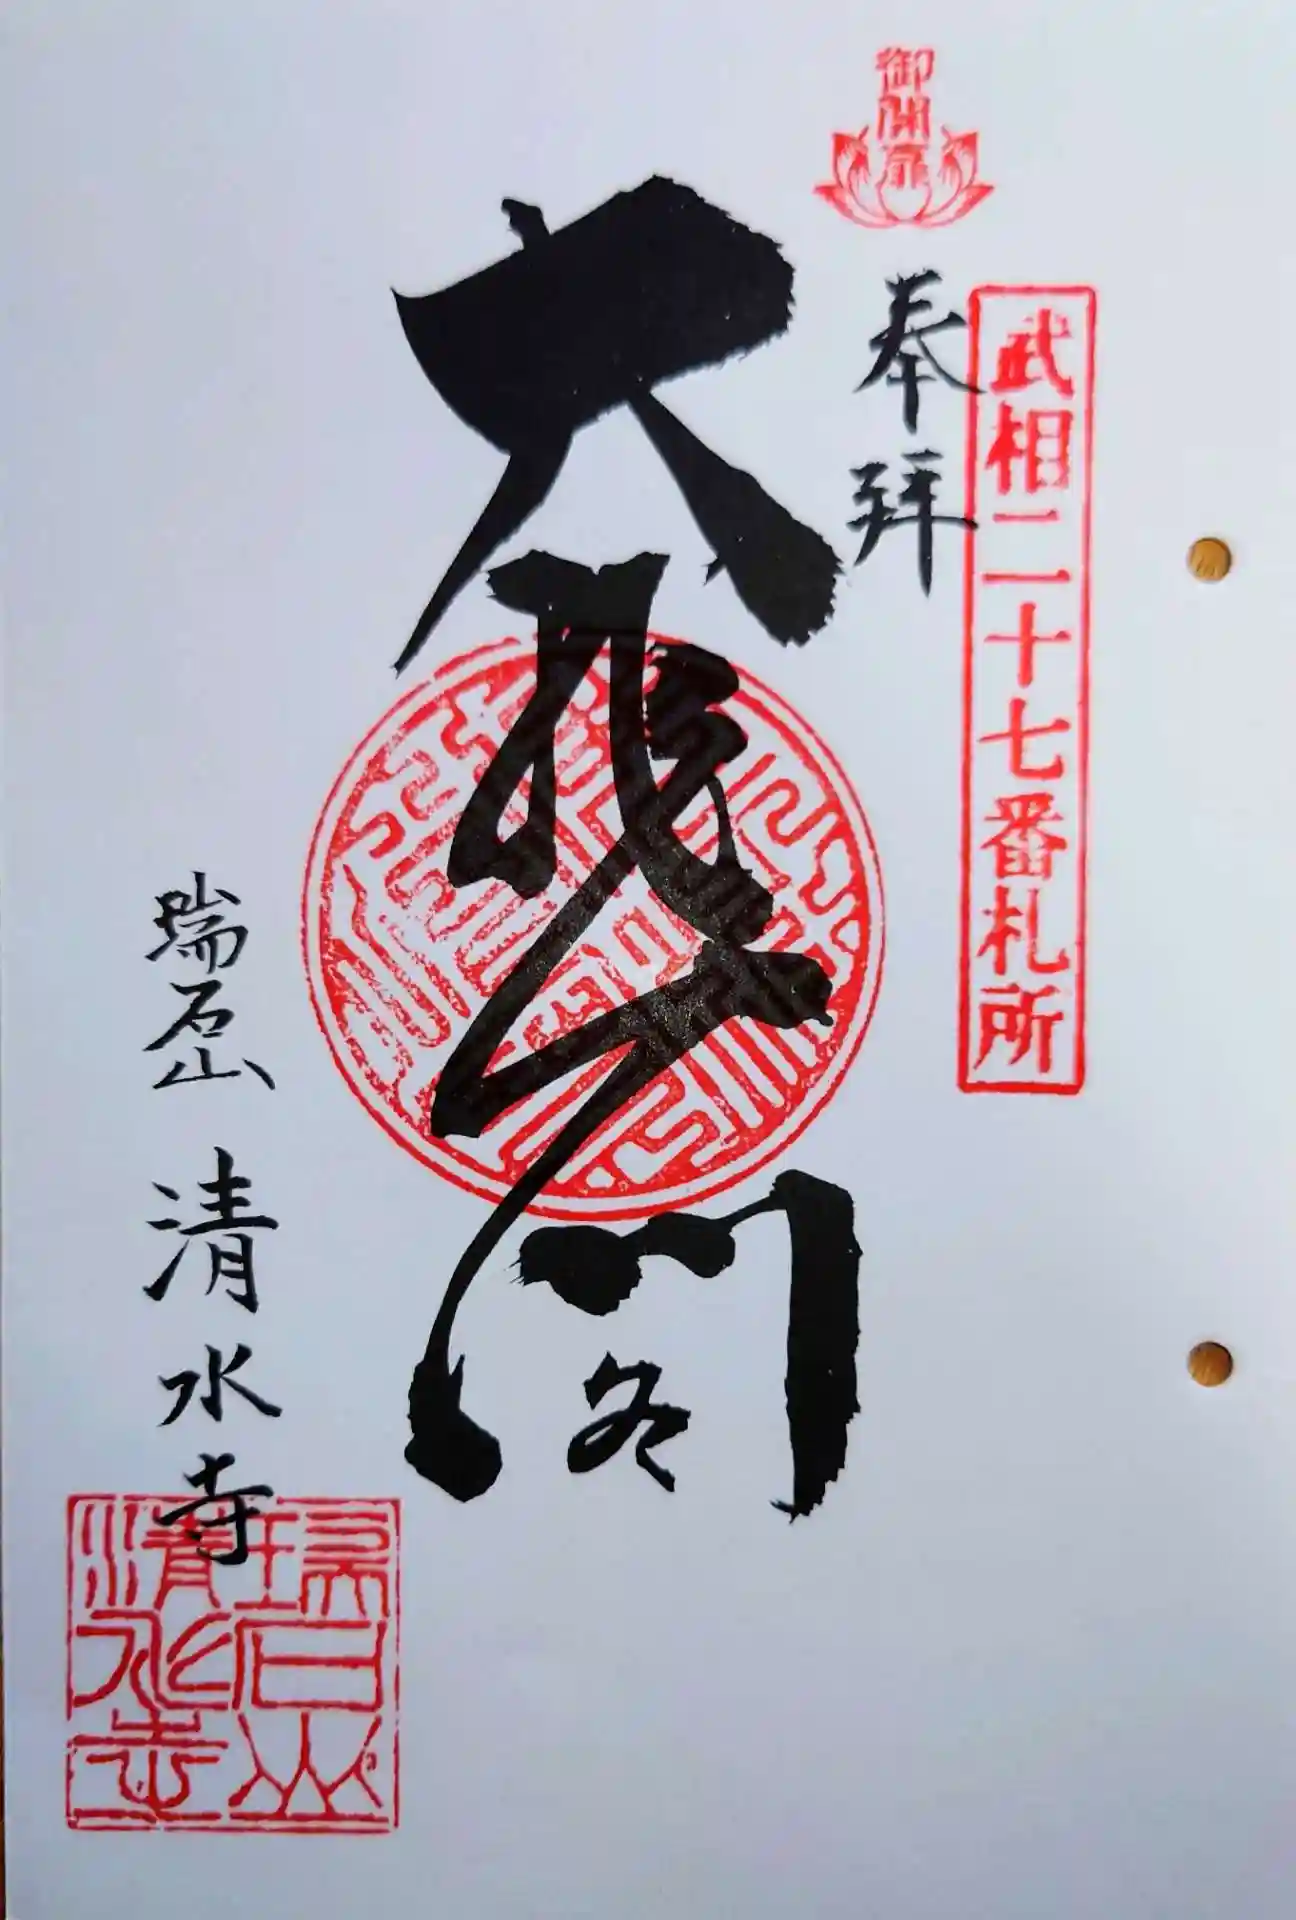 御開扉
武相二十七番札所
奉拝
大悲閣
瑞石山 清水寺
瑞石山
清水寺